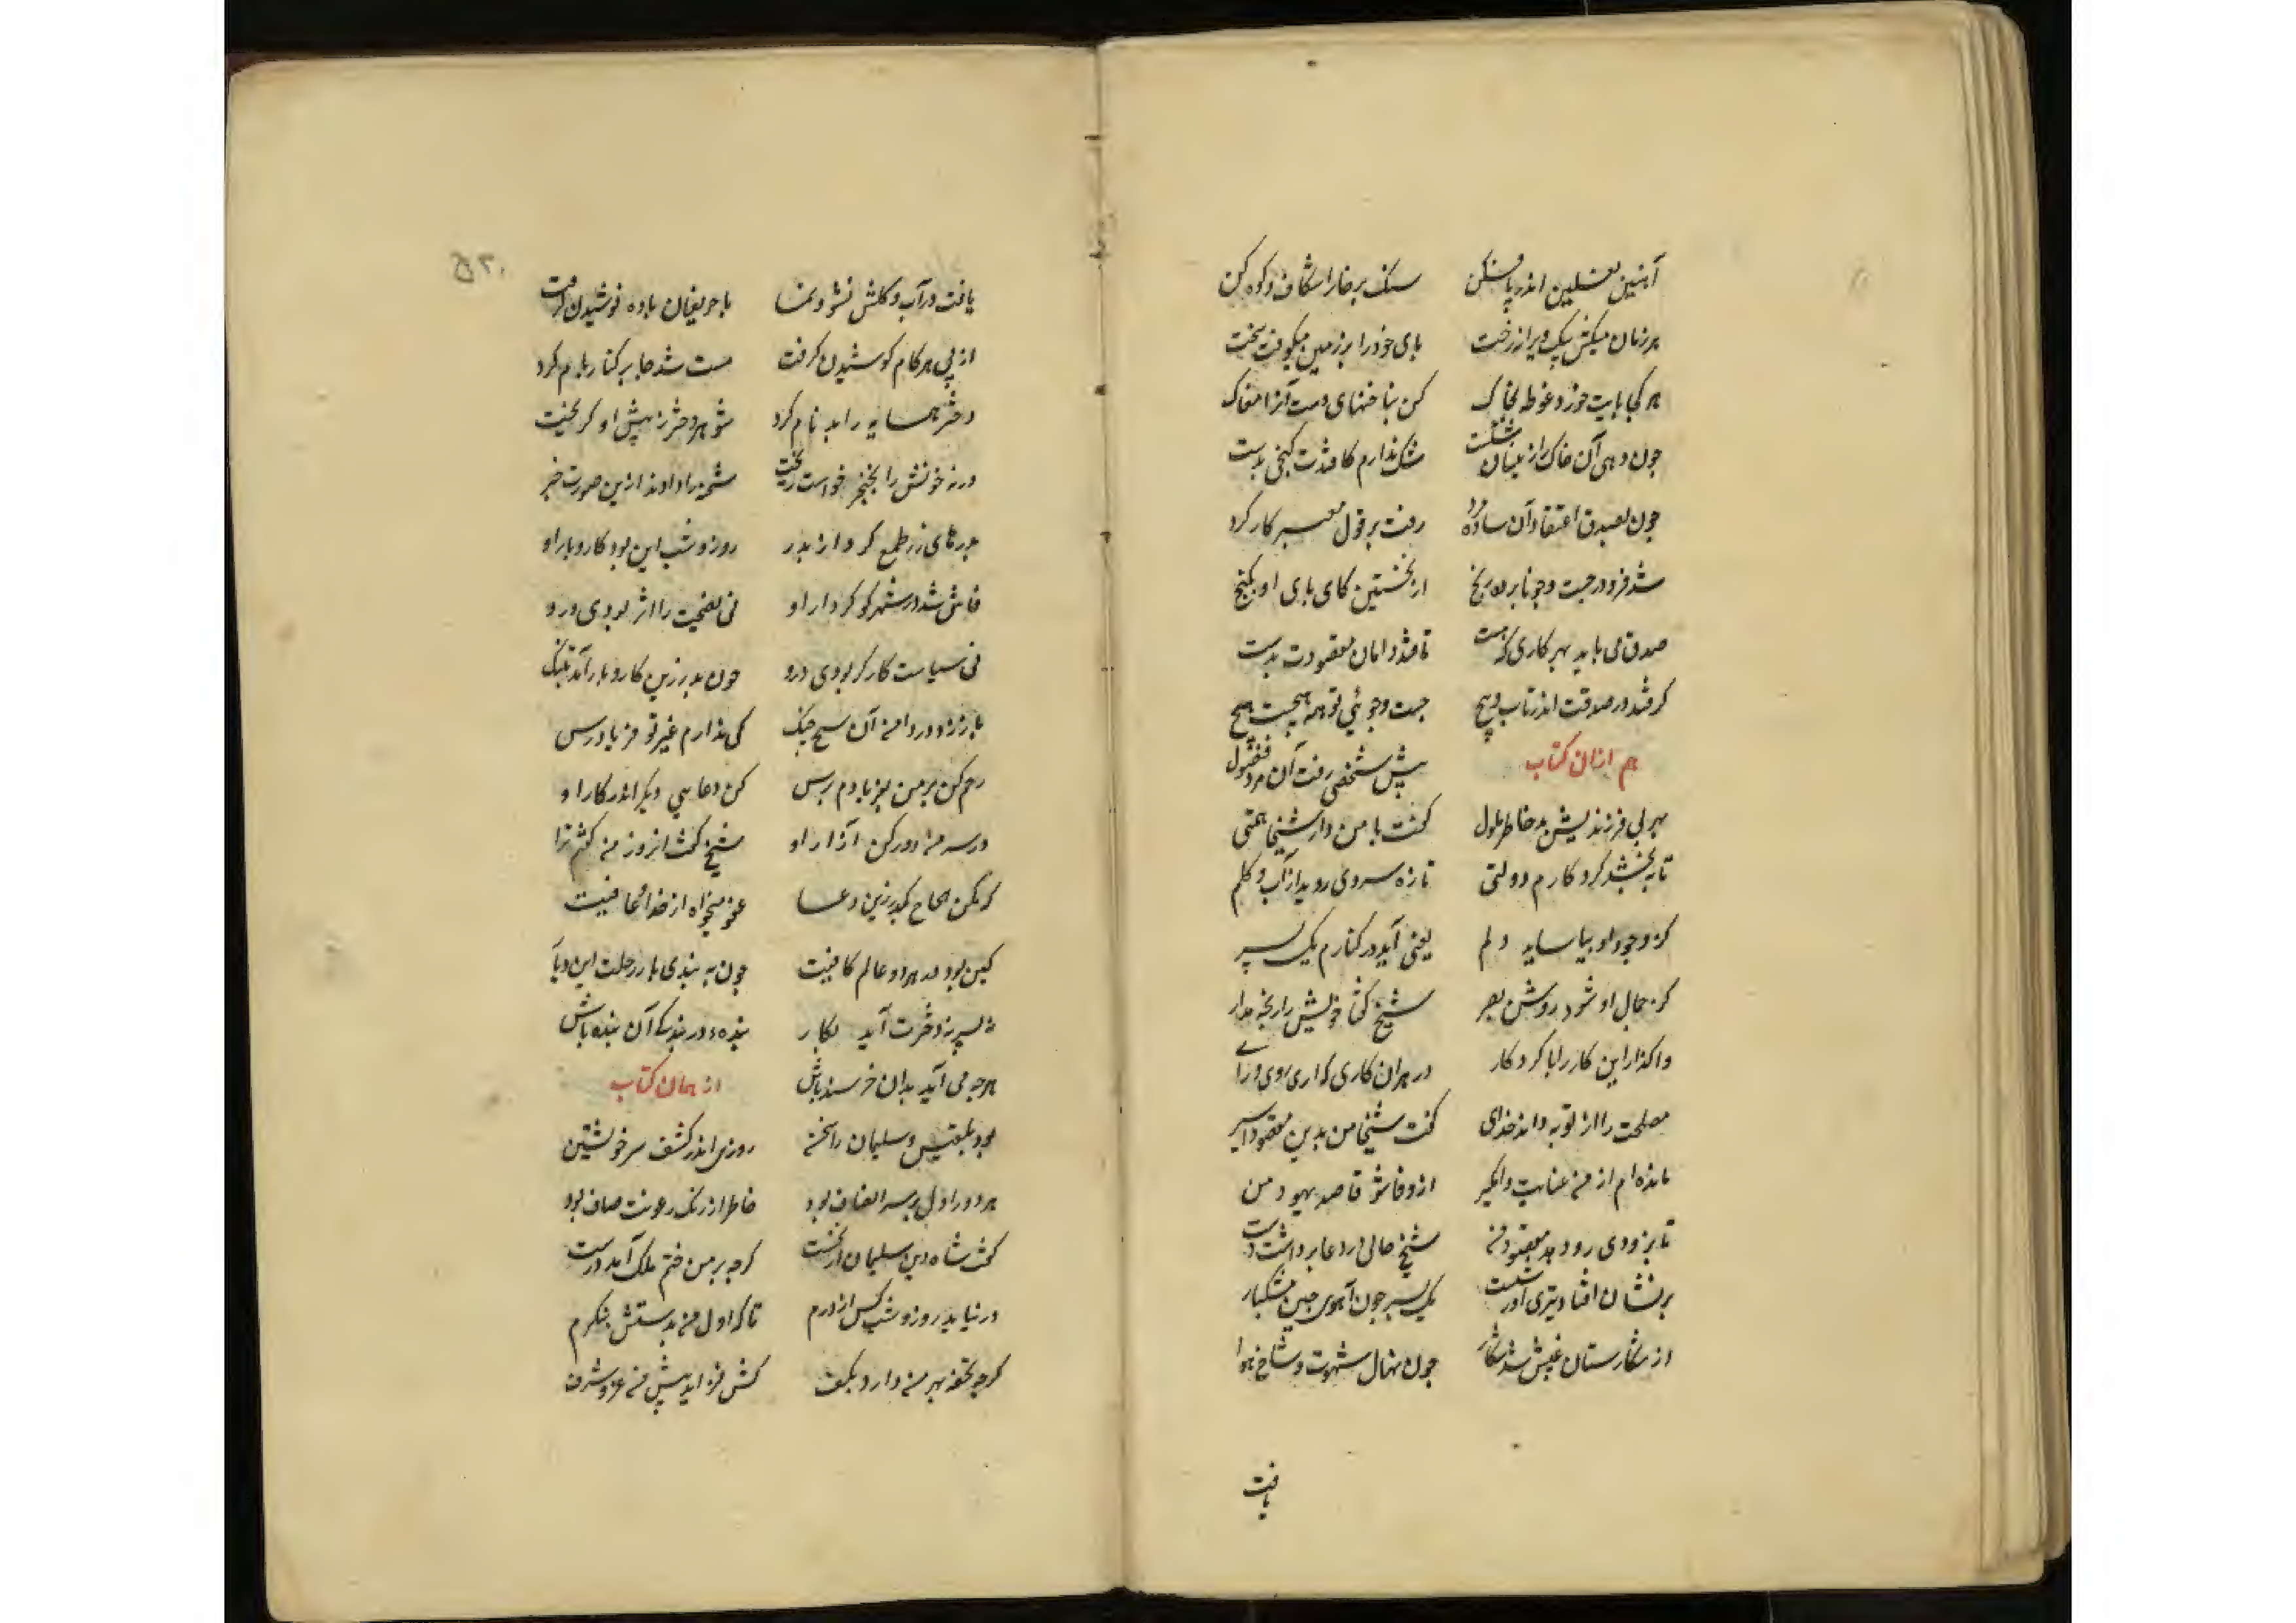 آهنین نعلین اندر پا فکن سنک بر خارا شکاف و کوه کن
هر زمان میکش بیک ویرانه رخت بای خود را بر زمین میکوفت سخت
هر کجا بایت خورد غوطه بخاک کن بناخنهای دست آنرا مغاک
جون دهی آن خاک را از میان شکست شک ندارم کافتدت کنجی بدست
جون بصدق اعتقاد آن ساده مرد رفت بر قول معبر کار کرد
شد فرو در جست وجو نابرده رنج از نخستین کای بای او بکنج
صدق می باید بهر کاری که هست تا فتد دامان مقصودت بدست
کر فتد در صدقت اندر تاب و پیچ جست وجوئی تو همه هیچست هیچ
هم ازان کتاب پیش شخصی رفت آن مرد فضول
بهر بی فرزندیش بد خاطر ملول کفت با من دار شیخا همتی
تا ببخشد کردکارم دولتی تازه سروی روید از آب و کلم
کز وجود او بیاساید دلم یعنی آید در کنارم یک پسر
کز جمال او شود روشن بصر شیخ کفتا خویش را رنجه مدار
واکذار این کار را با کردکار در هران کاری که آری روی و رای
مصلحت را از تو به داند خدای کفت شیخا من بدین مقصود اسیر
مانده ام از من عنایت وامکیر از دعا شو قاصد بهبود من
تا بزودی رو دهد مقصود من شیخ حالی در دعا برداشت دست
بر نشان افتاد تیری کو ز شست یک پسر جون آهوی جین مشکبار
از شکارستان غیبش شد شکار جون نهال شهوت و شاخ هوا
یافت
یافت در آب و کلش نشو و نما با حریفان باده نوشیدن کرفت
از پی هر کام کوشیدن کرفت مست شد جا بر کنار بام کرد
دختر همسایه را بد نام کرد شوهر دختر ز پیش او کریخت
ورنه خونش را بخنجر خواست ریخت شحنه را دادند ازین صورت خبر
بدرهای زر طمع کرد از بدر روز و شب این بود کار و بار او
فاش شد در شهر کو کردار او نی نصیحت را اثر بودی درو
نی سیاست کارکر بودی درو جون بدر زین کار و بار آمد بتنک
باز زد در دامن آن شیخ جنک کی ندارم غیر تو فریادرس
رحم کن بر من بفریادم برس کن دعایی دیکر اندر کار او
در سر من دور کن آزار او شیخ کفت انروز من کفتم ترا
که مکن الحاح بکذر زین دعا عفو میخواه از خدا و عافیت
کین بود در هر دو عالم کافیت جون به بندی بار رحلت این دیار
نه پسر نه دخترت آید بکار بنده در بندکی آن بنده باش
هرجه می آید بدان خرسند باش از همان کتاب
بود بلقیس و سلیمان را سخن روزی اندر کشف سر خویشتن
هر دو را دل بر سر انصاف بود خاطر از رنک رعونت صاف بود
کفت شاه دین سلیمان از نخست کرجه بر من ختم ملک آمد درست
در نیاید روز و شب کس از درم تا که اول من بدستش ننکرم
کر جه تحفه بهر من دارد بکف کش فزاید پیش من عز و شرف